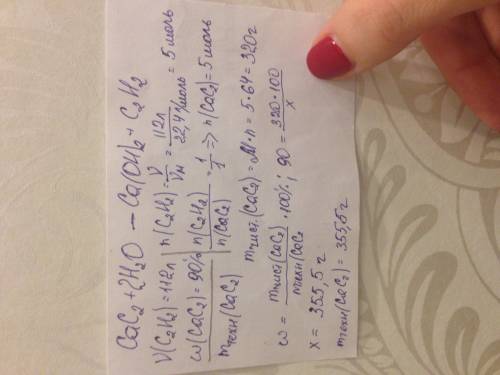 CaC₂ + 2H₂O → Ca(OH)₂ + C₂H₂
V(C₂H₂) = 112л | n(C₂H₂) = V/Vм = 112л/22,4л/моль = 5 моль
w(CaC₂) = 90% | n(C₂H₂)/n(CaC₂) = 1/1 => n(CaC₂) = 5 моль
mтехн(CaC₂)
mчист.(CaC₂) = M·n = 5·64 = 320г
w = mчист(CaC₂)/mтехн(CaC₂ ·100%; 90 = 320·100/x
x = 355,5г
mтехн(CaC₂) = 355,5г